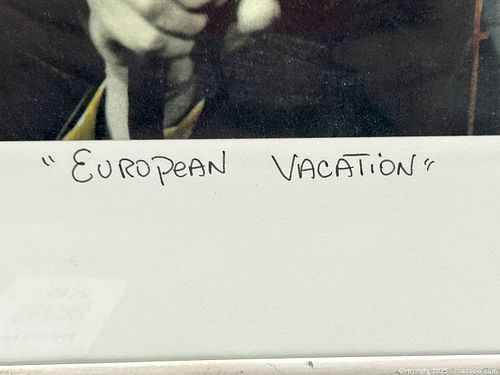 "EUROPEAN VACATION"
Copyright 2025 - maxsold.com